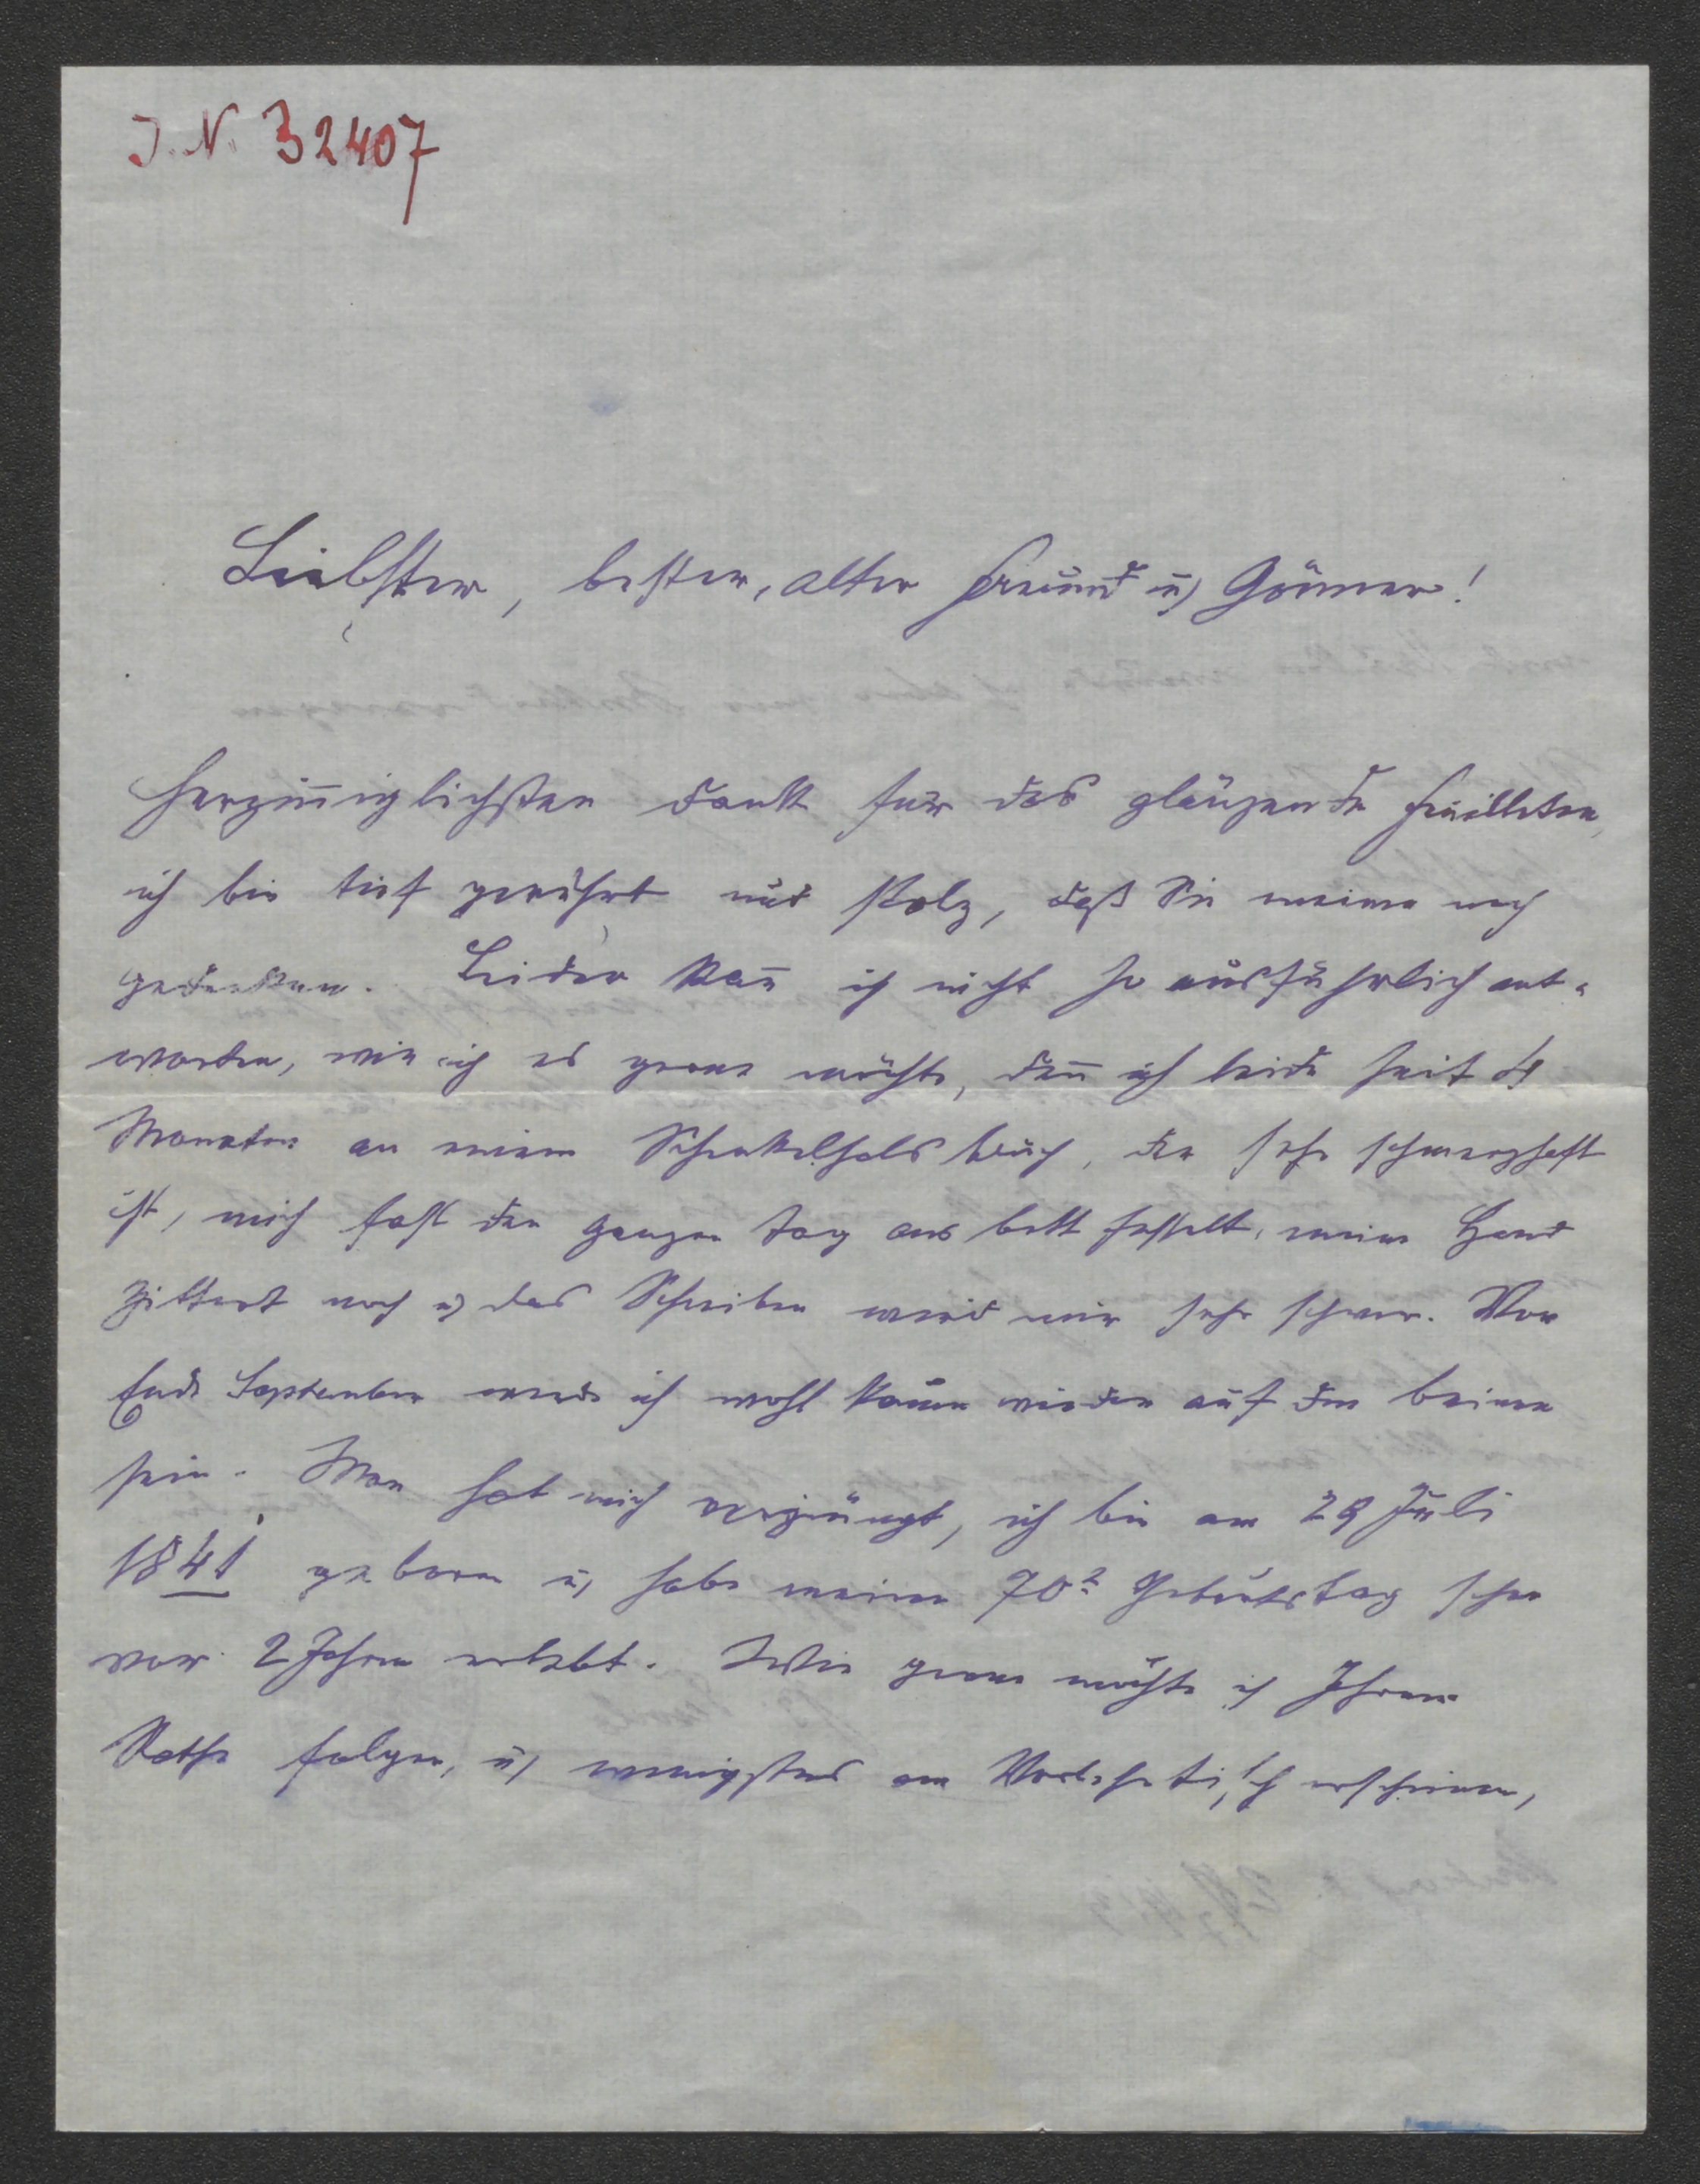 J. N. 32407
Liebster, bester, alter Freund u. Gönner!
Herzin̅iglichsten Dank für das glänzende Feuilleton,
ich bin tief gerührt und stolz, daß Sie meiner noch
gedenken. Leider kan̅ ich nicht so ausführlich ant-
worten, wie ich es gerne möchte, den̅ ich leide seit 4
Monaten an einem Schenkelhalsbruch, der sehr schmerzhaft
ist, mich fast den ganzen Tag ans Bett fesselt, meine Hand
zittert noch u. das Schreiben wird mir sehr schwer. Vor
Ende September werde ich wohl kaum wieder auf den Beinen
sein. Man hat mich verjüngt, ich bin am 29 Juli
1841 geboren u. habe meinen 70. Geburtstag schon
vor 2 Jahren erlebt. Wie gerne möchte ich Ihrem
Rathe folgen, u. wenigstens am erscheinen,